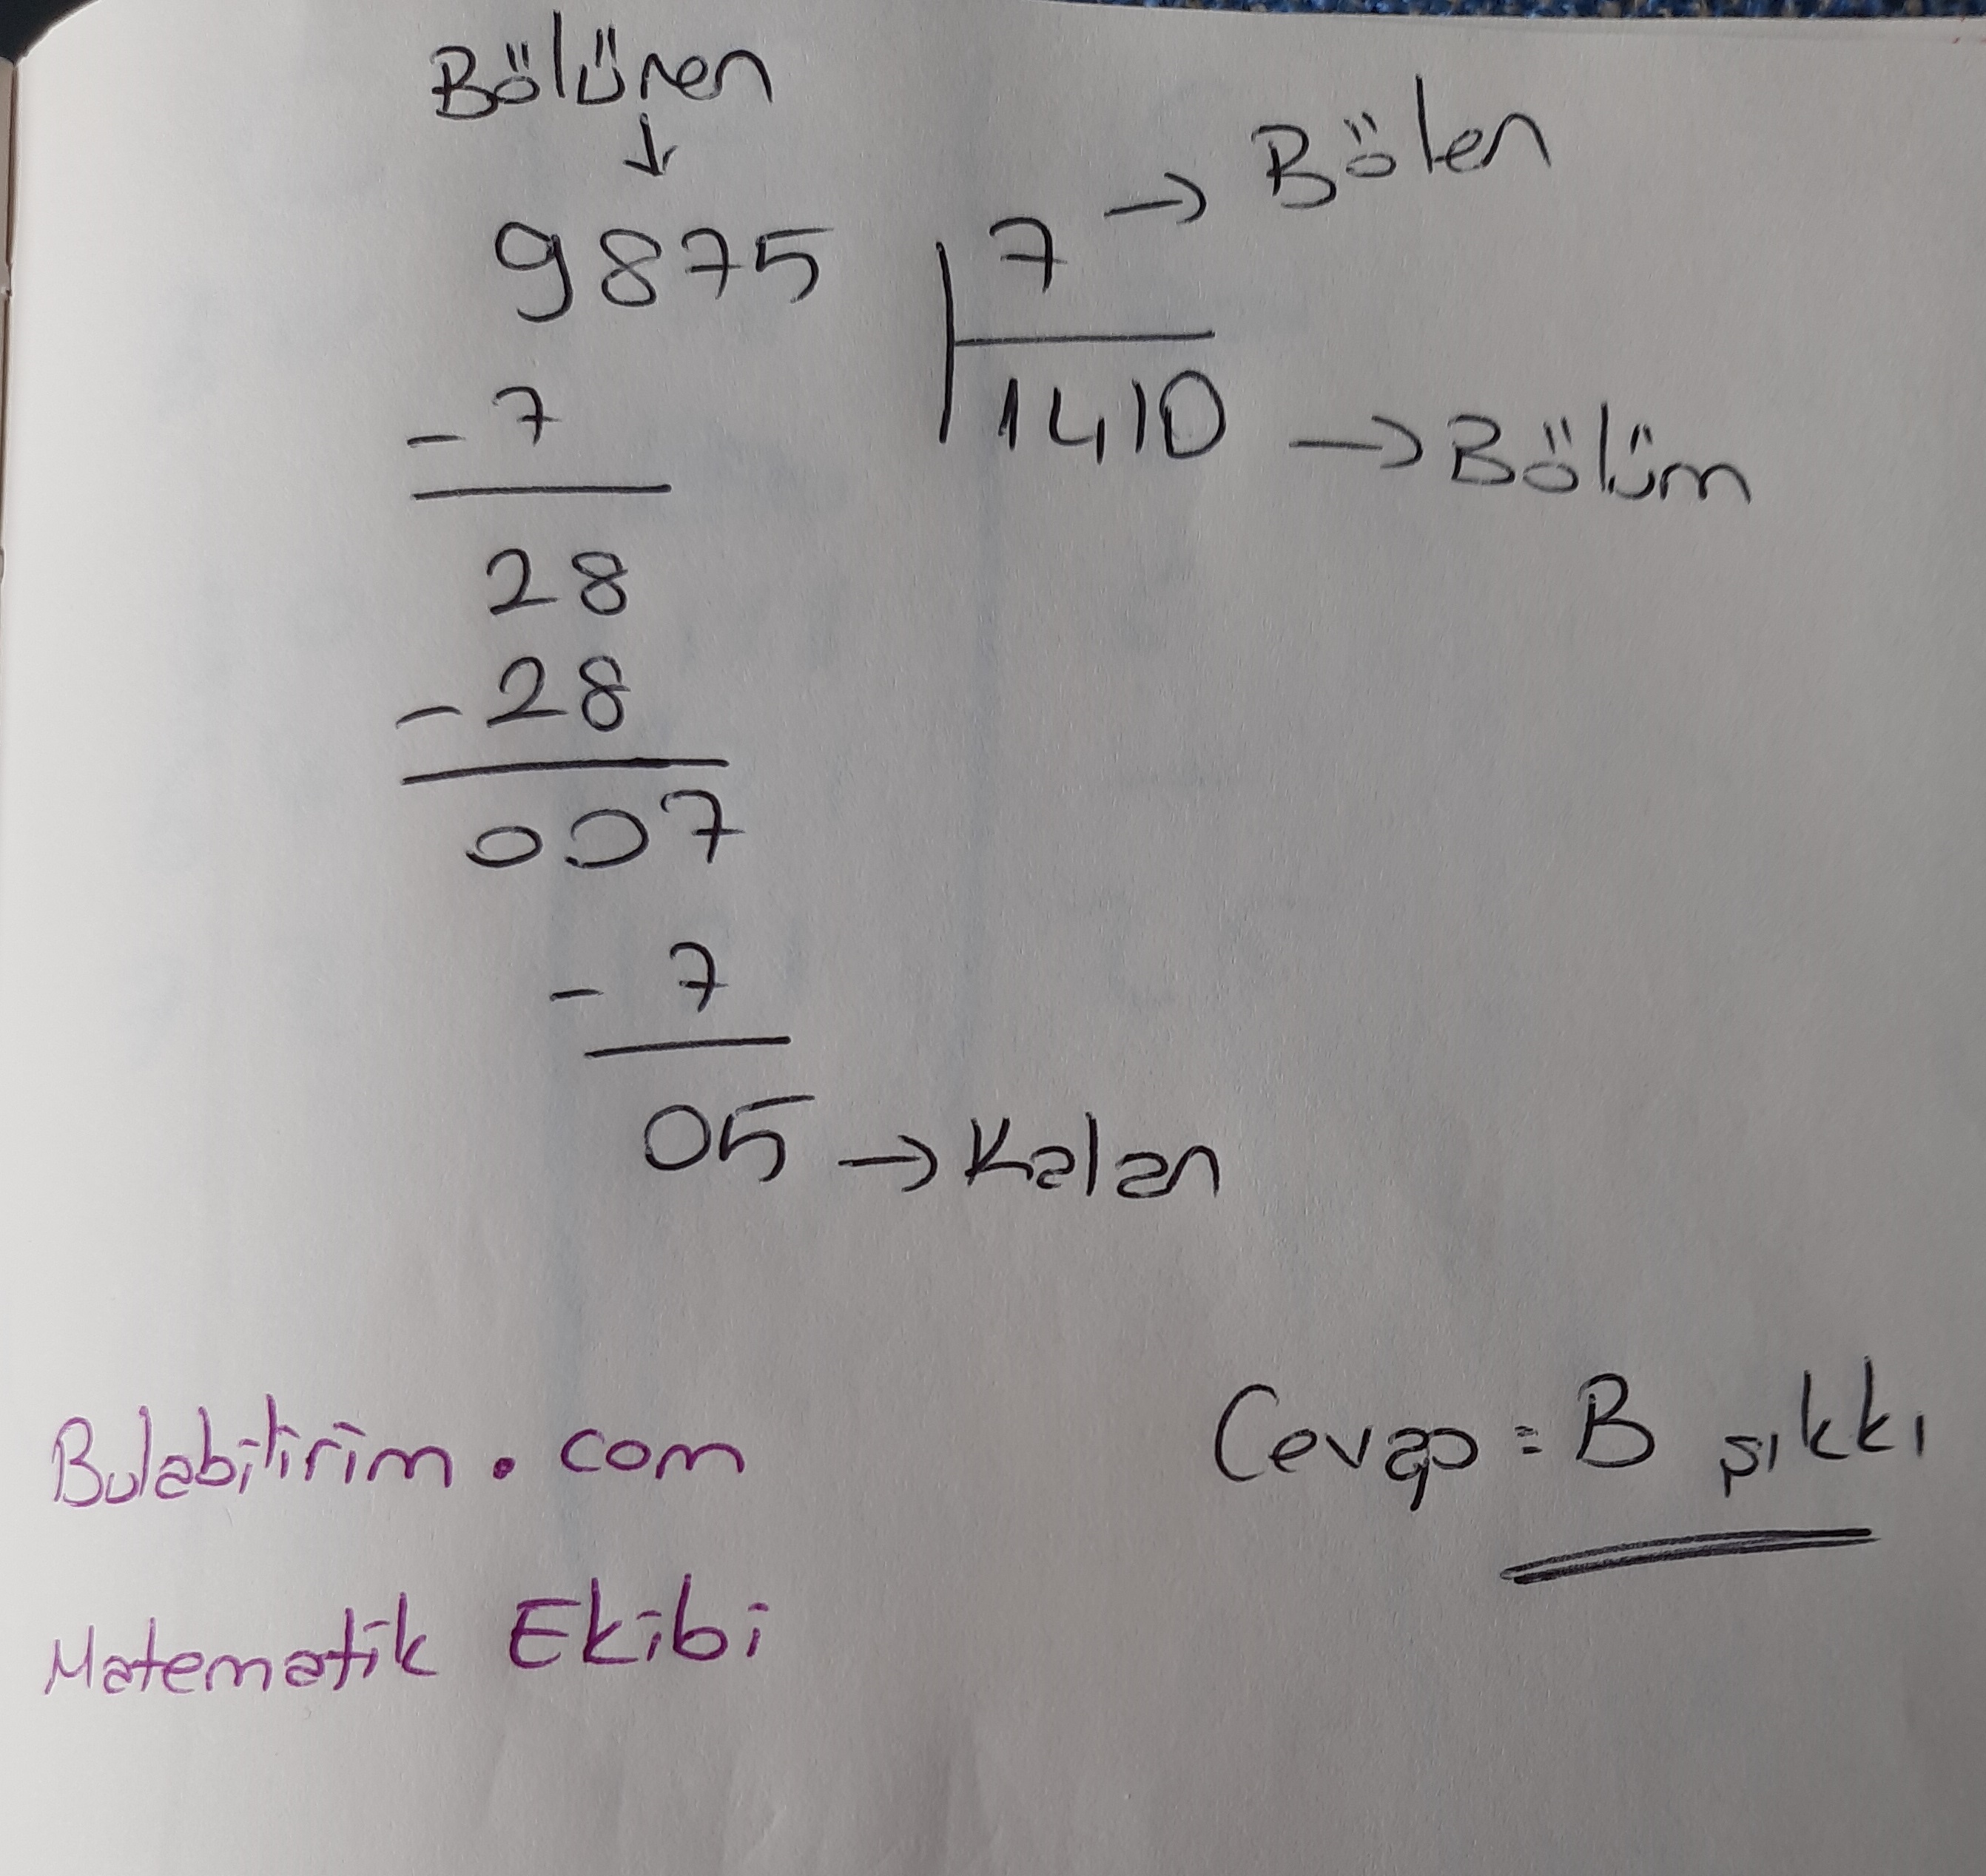 Bölünen
↓
9875 7 → Bölen
- 7 1410 → Bölüm
28
- 28
007
- 7
05 → Kalan
Cevap = B şıkkı
Bulabilirim.com
Matematik Ekibi